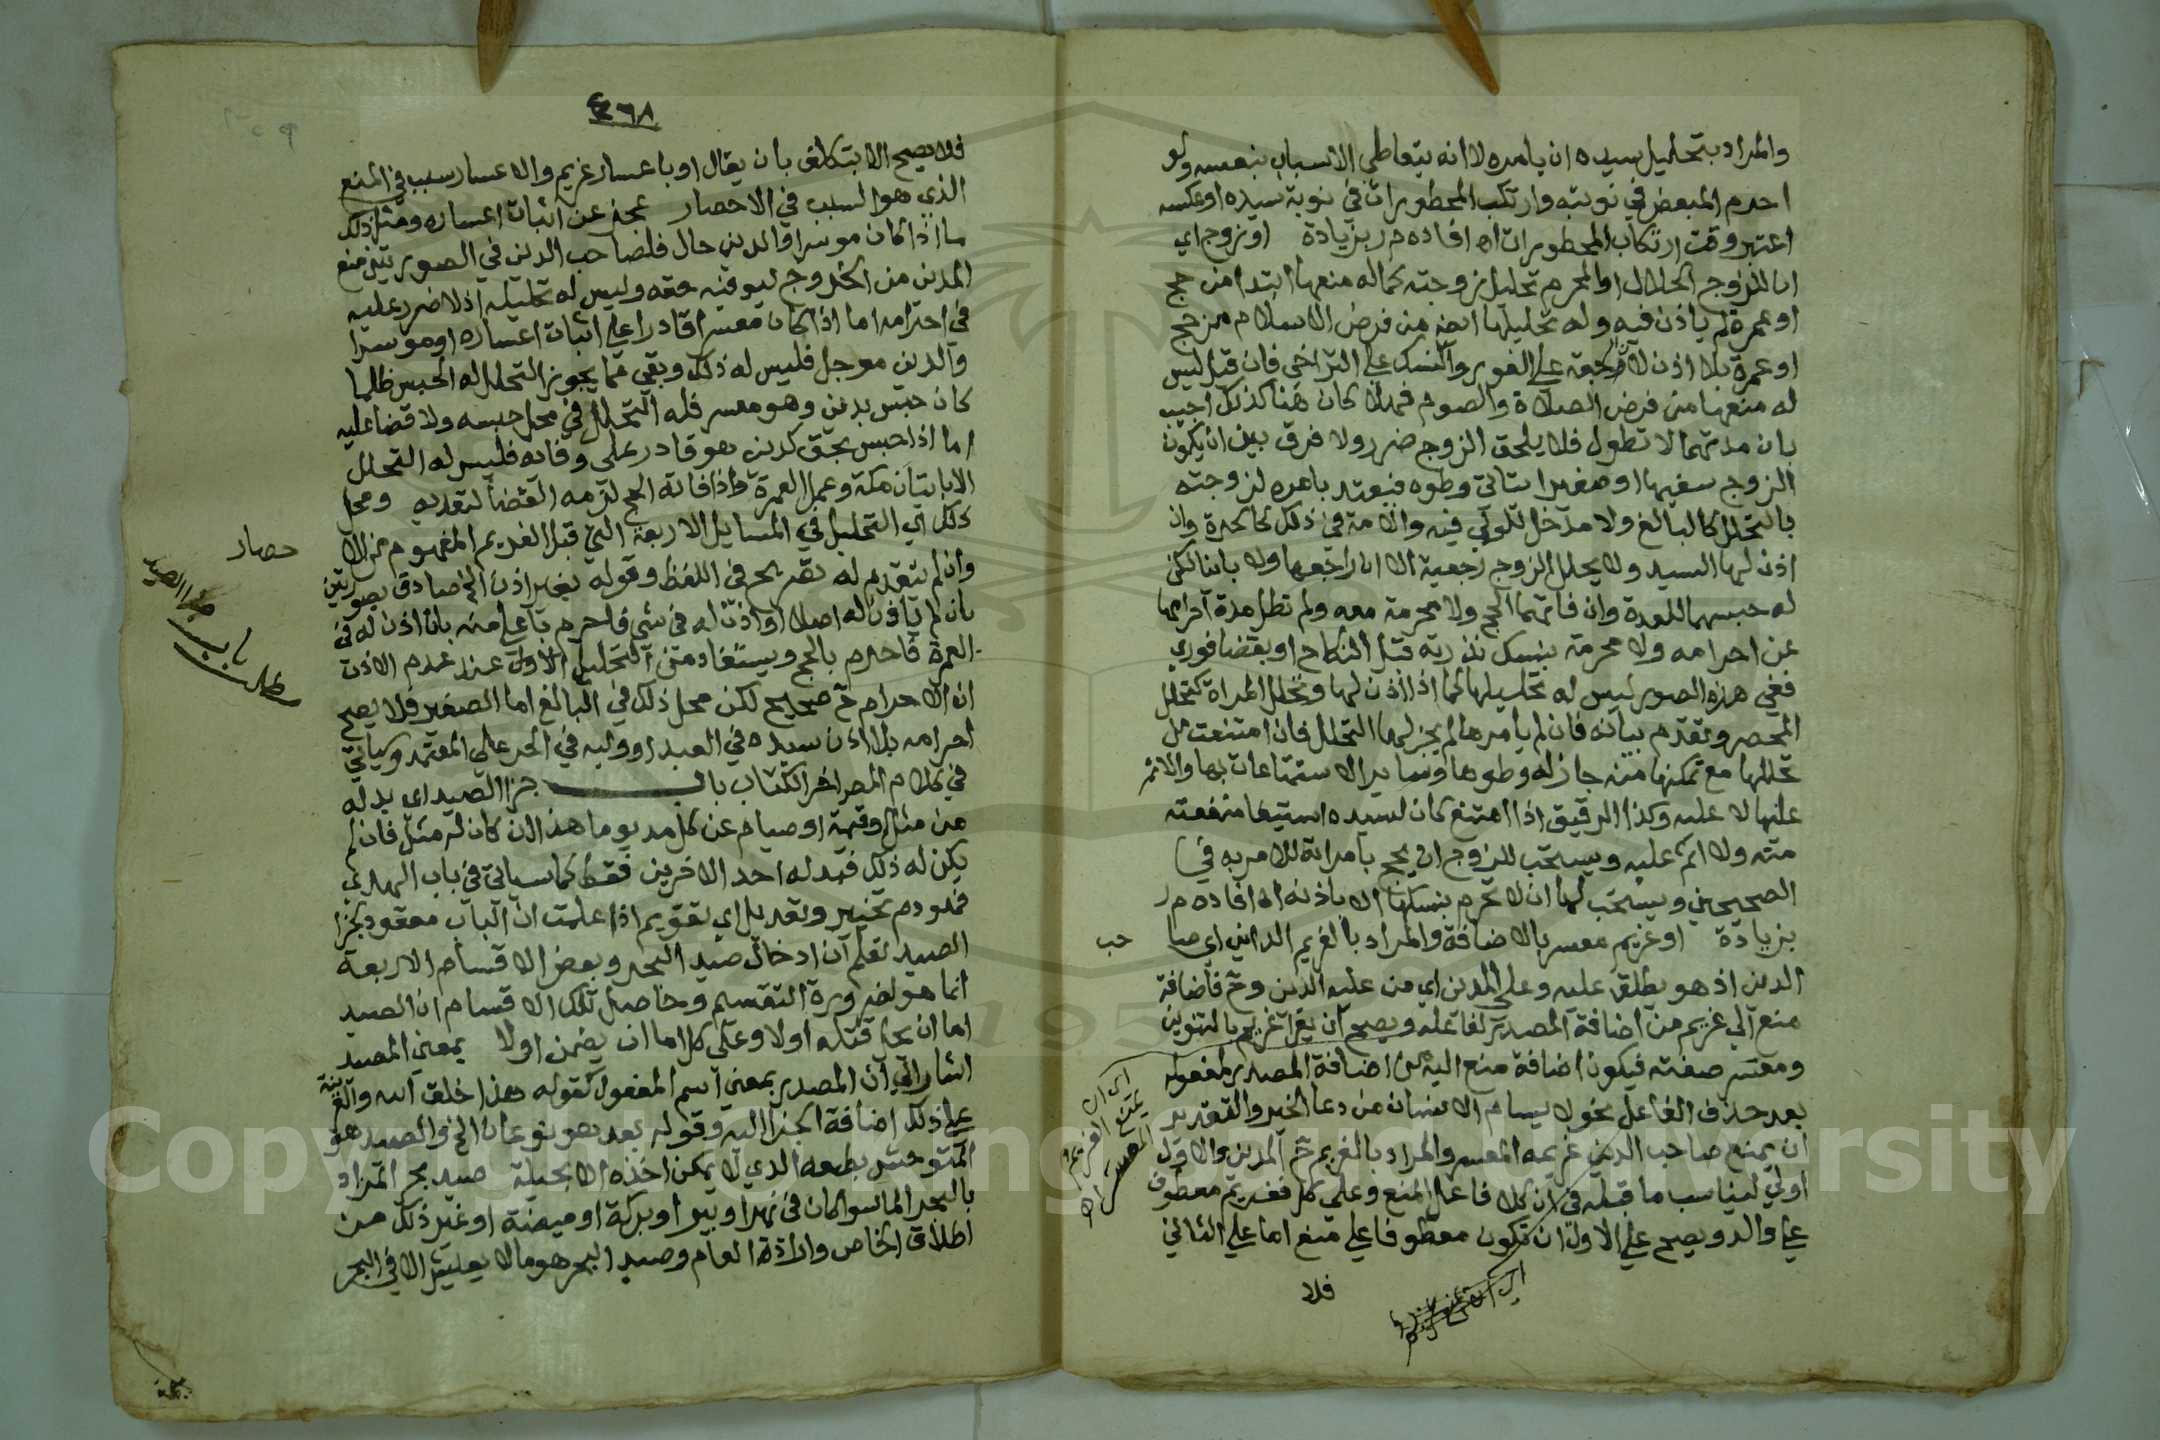 والمراد بتحليل سيده ان يامره لا انه يتعاطى الاسباب بنفسه ولو
احرم المبعض في نوبته وارتكب المحظورات في نوبة سيده او عكسه
اعتبر وقت ارتكاب المحظورات اه افاده م ر بزيادة او زوج اي
ان للزوج الحلال او المحرم تحليل زوجته كما له منعها ابتدا من حج
او عمرة لم ياذن فيه وله تحليلها ايضا من فرض الاسلام من حج
او عمرة بلا اذن لان حقه على الفور والنسك على التراخي فان قيل ليس
له منعها من فرض الصلاة والصوم فهلا كان هنا كذلك اجيب
بان مدتهما لا تطول فلا يلحق الزوج ضرر ولا فرق بين ان يكون
الزوج سفيها او صغيرا يتاتى وطوه فيعتد بامره لزوجته
بالتحلل كالبالغ ولا مدخل للولي فيه والامة في ذلك كالحرة وان
اذن لها السيد ولا يحلل الزوج رجعية الا ان راجعها ولا باينا لكن
له حبسهما للعدة وان فاتهما الحج ولا محرمة معه ولم تطل مدة احرامها
عن احرامه ولا محرمة بنسك نذرته قبل النكاح او بقضا فوري
ففي هذه الصور ليس له تحليلها كما اذا اذن لها وتحلل المراة كتحلل
المحصر وتقدم بيانه فان لم يامرها لم يجز لها التحلل فان امتنعت من
تحللها مع تمكنها منه جاز له وطوها وساير الاستمتاعات بها والاثم
عليها لا عليه وكذا الرقيق اذا امتنع كان لسيده استيفا منفعته
منه ولا اثم عليه ويستحب للزوج ان يحج بامراته للامر به في
الصحيحين ويستحب لها ان لا تحرم بنسكها الا باذنه اه افاده م ر
بزيادة او غريم معسر بالاضافة والمراد بالغريم الداين اي صا
حب
الدين اذ هو يطلق عليه وعلى المدين اي من عليه الدين وح فاضافة
منع الي غريم من اضافة المصدر لفاعله ويصح ان يقرا غريم بالتنوين
ومعسر صفته فيكون اضافة منع اليه من اضافة المصدر لمفعوله
بعد حذف الفاعل نحو لا يسام الانسان من دعا الخير والتقدير
ان يمنع صاحب الدين غريمه المعسر والمراد بالغريم ح المدين والاول
اولي ليناسب ما قبله في ان كلا فاعل المنع وعلى كل فغريم معطوف
على والد ويصح على الاول ان تكون معطوفا على منع اما على الثاني
فلا
اي ان
يمنع الغريم
المعسر اه
٤٦٨
فلا يصح الا بتكلف بان يقال او باعسار غريم والاعسار سبب في المنع
الذي هو السبب في الاحصار عجز عن اثبات اعساره ومثل ذلك
ما اذا كان موسرا والدين حال فلصاحب الدين في الصورتين منع
المدين من الخروج ليوفيه حقه وليس له تحليله اذ لا ضرر عليه
في احرامه اما اذا كان معسرا قادرا على اثبات اعساره او موسرا
والدين موجل فليس له ذلك وبقي مما يجوز التحلل له الحبس ظلما
كان حبس بدين وهو معسر فله التحلل في محل حبسه ولا قضا عليه
اما اذا حبس بحق كدين هو قادر على وفائه فليس له التحلل
الا باتيان مكة وعمل العمرة واذا فاته الحج لزمه القضا لتعديه ومحل
ذلك اي التحليل في المسايل الاربعة التي قبل الغريم المفهوم من الا
حصار
وان لم يتقدم له تصريح في اللفظ وقوله بغير اذن الخ صادق بصورتين
بان لم ياذن له اصلا او اذن له في شي فاحرم باعلى منه بان اذن له في
العمرة فاحرم بالحج ويستفاد من التحليل الاول عند عدم الاذن
ان الاحرام ح صحيح لكن محل ذلك في البالغ اما الصغير فلا يصح
احرامه بلا اذن سيده في العبد او وليه في الحر على المعتمد وسياتي
في كلام المص اخر الكتاب باب جزا الصيد اي بدله
من مثل وقيمة او صيام عن كل مد يوما هذا ان كان له مثل فان لم
يكن له ذلك فبدله احد الاخرين فقط كما سياتي في باب الهدي
فهو دم تخيير وتعديل اي تقويم اذا علمت ان الباب معقود لجزا
الصيد تعلم ان ادخال صيد البحر وبعض الاقسام الاربعة
انما هو لضرورة التقسيم وحاصل تلك الاقسام ان الصيد
اما ان يحل قتله اولا وعلى كل اما ان يضمن اولا بمعنى المصيد
اشار الي ان المصدر بمعنى اسم المفعول كقوله هذا خلق الله والقرينة
على ذلك اضافة الجزا اليه وقوله بعد هو نوعان الخ والصيد هو
المتوحش بطبعه الذي لا يمكن اخذه الا بحيلة صيد بحر المراد
بالبحر الما سوا كان في نهر او بير او بركة او ميضة او غير ذلك من
اطلاق الخاص وارادة العام وصيد البحر هو ما لا يعيش الا في البحر
باب
جزا الصيد
Copyright © King Saud University
195